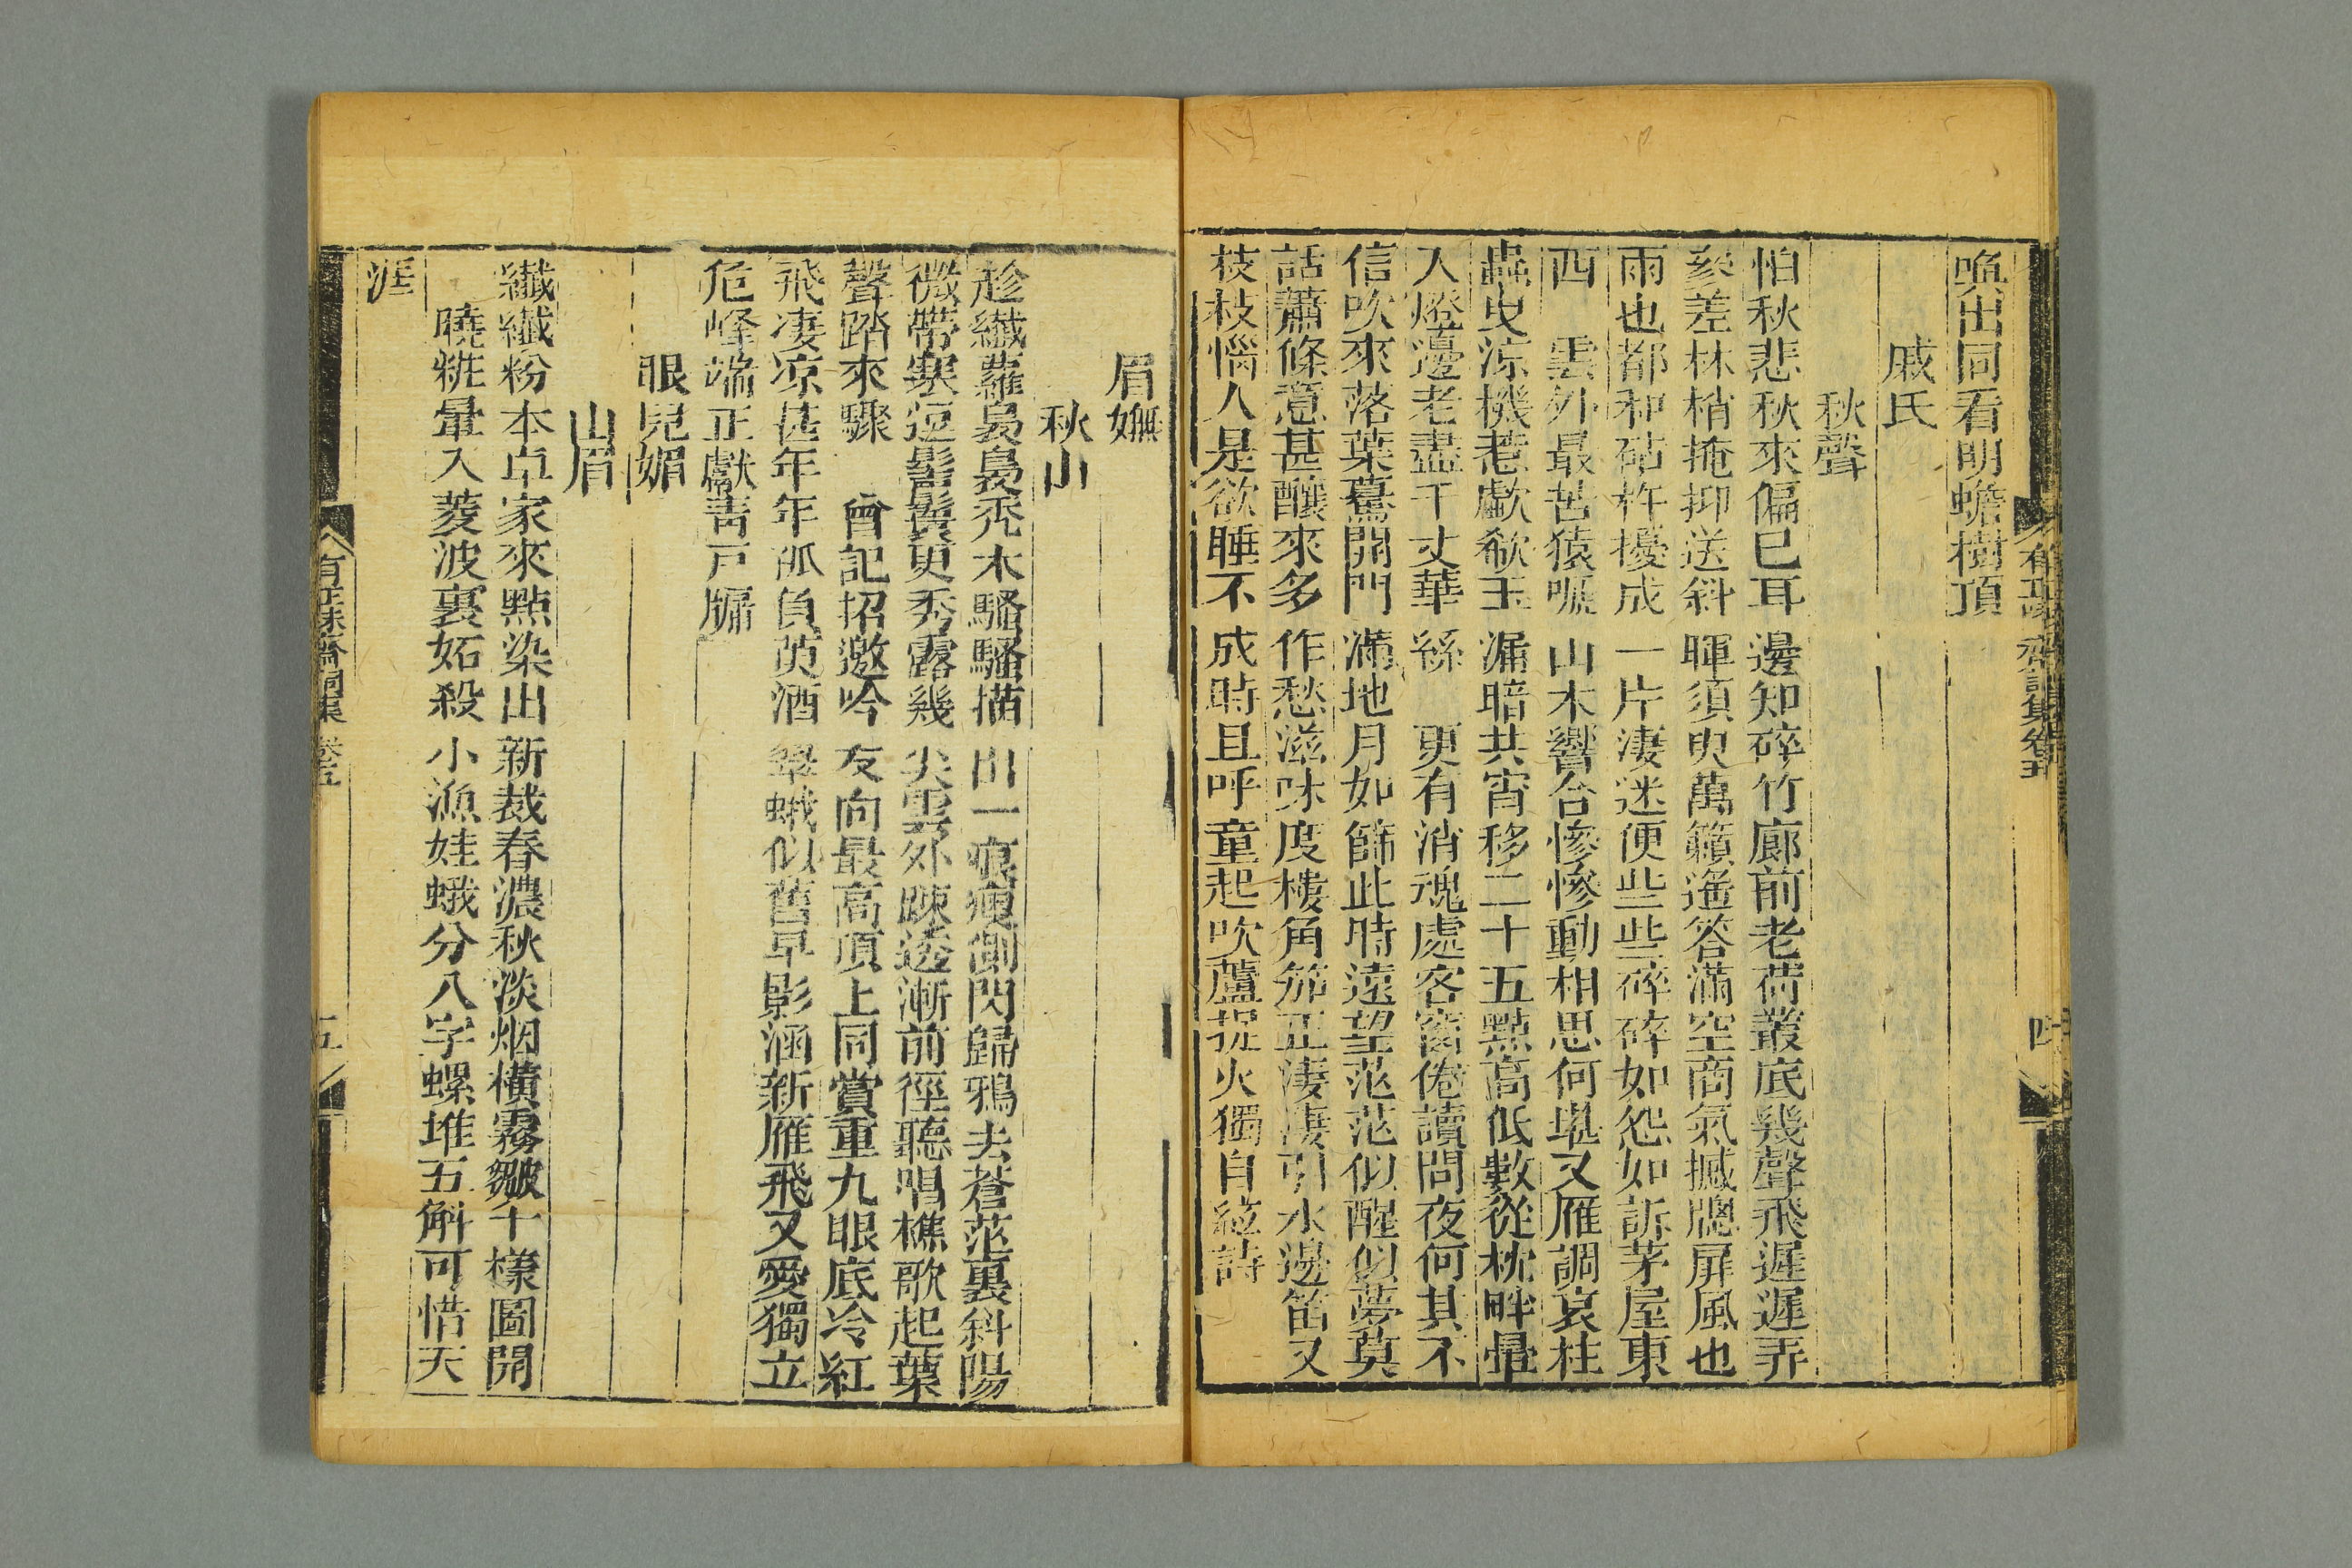 喚出同看明蟾樹頂
戚氏
秋聲
怕秋悲秋來偏已耳邊知碎竹廊前老荷叢底幾聲飛遲遲弄
參差林梢掩抑送斜暉須臾萬籟遙答滿空商氣撼牕屏風也
雨也都和砧杵擾成一片淒迷便些些碎碎如怨如訴茅屋東
西　雲外最苦猿嗁山木響合慘慘動相思何堪又雁調哀柱
蟲曳涼機老歔欷玉漏暗共宵移二十五點高低數從枕畔暈
入燈邊老盡千丈華絲　更有消魂處客窗倦讀問夜何其不
信吹來落葉驀開門滿地月如篩此時遠望茫茫似醒似夢莫
話蕭條意甚釀來多作愁滋味度樓角笳正淒淒引水邊笛又
枝枝惱人是欲睡不成時且呼童起吹蘆捉火獨自続詩
有正味齋詞集卷五
四
眉嫵
秋山
趁纖蘿裊裊禿木騷騷描出一痕瘦側閃歸鴉去蒼茫裏斜陽
微帶寒逗髻鬟更秀露幾尖雲外疎透漸前徑聽唱樵歌起葉
聲踏來驟　曾記招邀吟友向最高頂上同賞重九眼底冷紅
飛凄凉甚年年孤負萸酒翠蛾似舊早影涵新雁飛又愛獨立
危峰端正獻靑戸牖
眼兒媚
山眉
纖纖粉本卓家來點染出新裁春濃秋淡烟橫霧皺千樣圖開
曉粧暈入菱波裏妬殺小漁娃蛾分八字螺堆五斛可惜天
涯
有正味齋詞集　卷五
五